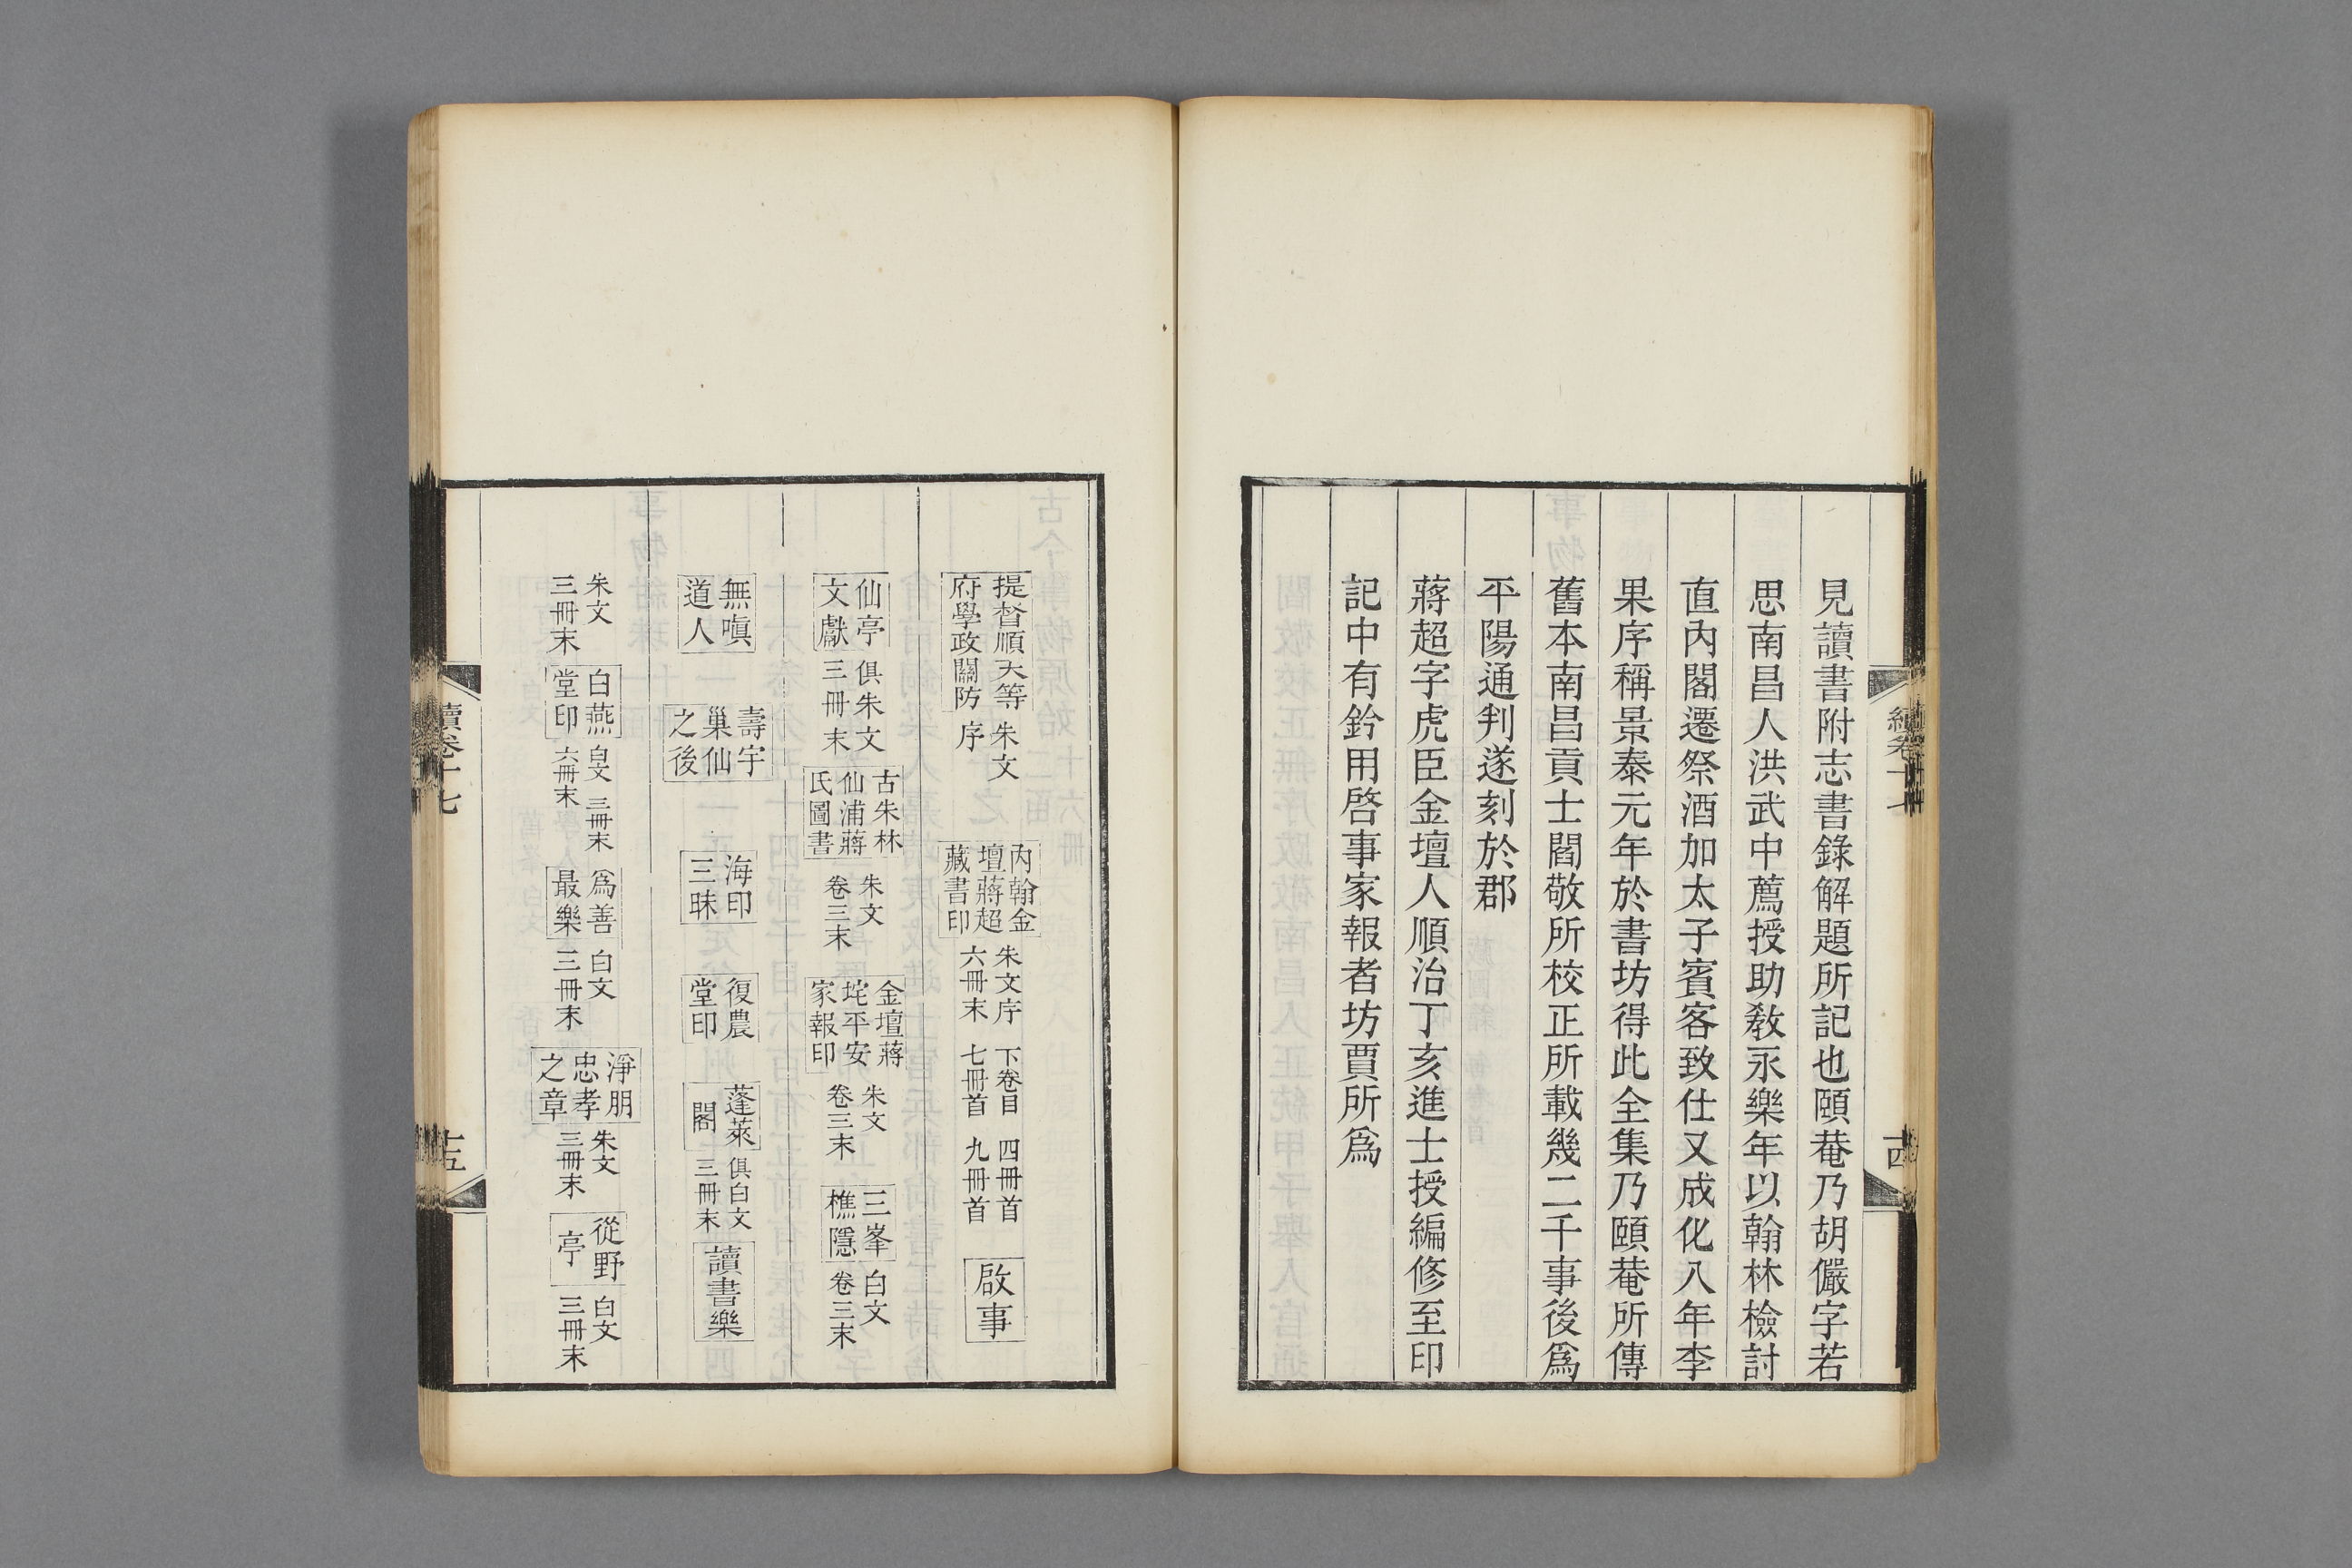 見讀書附志書錄解題所記也頤菴乃胡儼字若
思南昌人洪武中薦授助敎永樂年以翰林檢討
直內閣遷祭酒加太子賓客致仕又成化八年李
果序稱景泰元年於書坊得此全集乃頤菴所傳
舊本南昌貢士閻敬所校正所載幾二千事後爲
平陽通判遂刻於郡
蔣超字虎臣金壇人順治丁亥進士授編修至印
記中有鈐用啓事家報者坊賈所爲
提督順天等
府學政關防
朱文
序
內翰金
壇蔣超
藏書印
朱文序
六冊末
下卷目
七冊首
四冊首
九冊首
啟事
仙亭
文獻
俱朱文
三冊末
古朱林
仙浦蔣
氏圖書
朱文
卷三末
金壇蔣
垞平安
家報印
朱文
卷三末
三峯
樵隱
白文
卷三末
無嗔
道人
壽宇
巢仙
之後
海印
三昧
復農
堂印
蓬萊
閣
俱白文
三冊末
讀書樂
朱文
三冊末
白燕
堂印
白文
六冊末
三冊末
爲善
最樂
白文
三冊末
淨朋
忠孝
之章
朱文
三冊末
從野
亭
白文
三冊末
續卷十七
十五